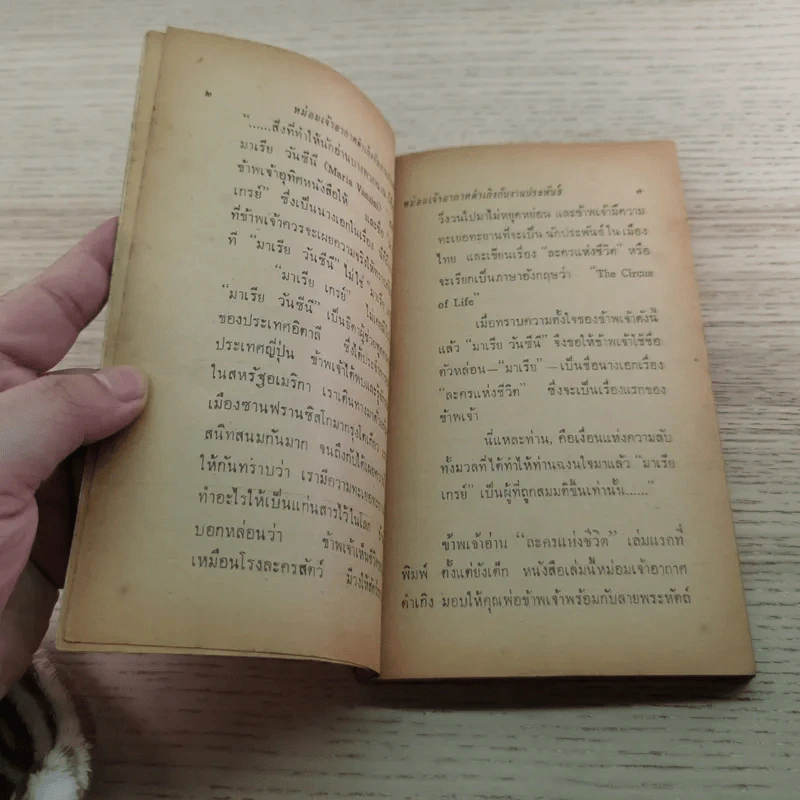 ๒
หม่อมเจ้าอากาศดำเกิง
“......สิ่งที่ทำให้นักอ่านบางพวก
มาเรีย วันซีนี (Maria Vanzini)
ข้าพเจ้าอุทิศหนังสือให้ และชื่อ
เกรย์” ซึ่งเป็นนางเอกในเรื่อง
ที่ข้าพเจ้าควรจะเผยความจริงให้
ที่ “มาเรีย วันซีนี” ไม่ใช่ “มาเรีย
“มาเรีย เกรย์”
“มาเรีย วันซีนี” เป็นธิดาผู้ช่วยทูต
ของประเทศอิตาลี ซึ่งได้ประจำ
ประเทศญี่ปุ่น ข้าพเจ้าได้พบและรู้จัก
ในสหรัฐอเมริกา เราเดินทางมาด้วย
เมืองซานฟรานซิสโกมากรุงโตเกียว
สนิทสนมกันมาก จนถึงกับได้เผย
ให้กันทราบว่า เรามีความทะเยอทะยาน
ทำอะไรให้เป็นแก่นสารไว้ในโลก
บอกหล่อนว่า ข้าพเจ้าเห็นชีวิต
เหมือนโรงละครสัตว์ มีวงให้สัตว์
หม่อมเจ้าอากาศดำเกิงกับงานประพันธ์ ๓
วิ่งวนไปมาไม่หยุดหย่อน และข้าพเจ้ามีความ
ทะเยอทะยานที่จะเป็น นักประพันธ์ ใน เมือง
ไทย และเขียนเรื่อง “ละครแห่งชีวิต” หรือ
จะเรียกเป็นภาษาอังกฤษว่า “The Circus
of Life”
เมื่อทราบความตั้งใจของข้าพเจ้าดังนี้
แล้ว “มาเรีย วันซีนี” จึงขอให้ข้าพเจ้าใช้ชื่อ
ตัวหล่อน—“มาเรีย” —เป็นชื่อนางเอกเรื่อง
“ละครแห่งชีวิต” ซึ่งจะเป็นเรื่องแรกของ
ข้าพเจ้า
นี่แหละท่าน, คือเงื่อนแห่งความลับ
ทั้งมวลที่ได้ทำให้ท่านฉงนใจมาแล้ว “มาเรีย
เกรย์” เป็นผู้ที่ถูกสมมติขึ้นเท่านั้น......”
ข้าพเจ้าอ่าน “ละครแห่งชีวิต” เล่มแรกที่
พิมพ์ ตั้งแต่ยังเด็ก หนังสือเล่มนี้หม่อมเจ้าอากาศ
ดำเกิง มอบให้คุณพ่อข้าพเจ้าพร้อมกับลายพระหัตถ์